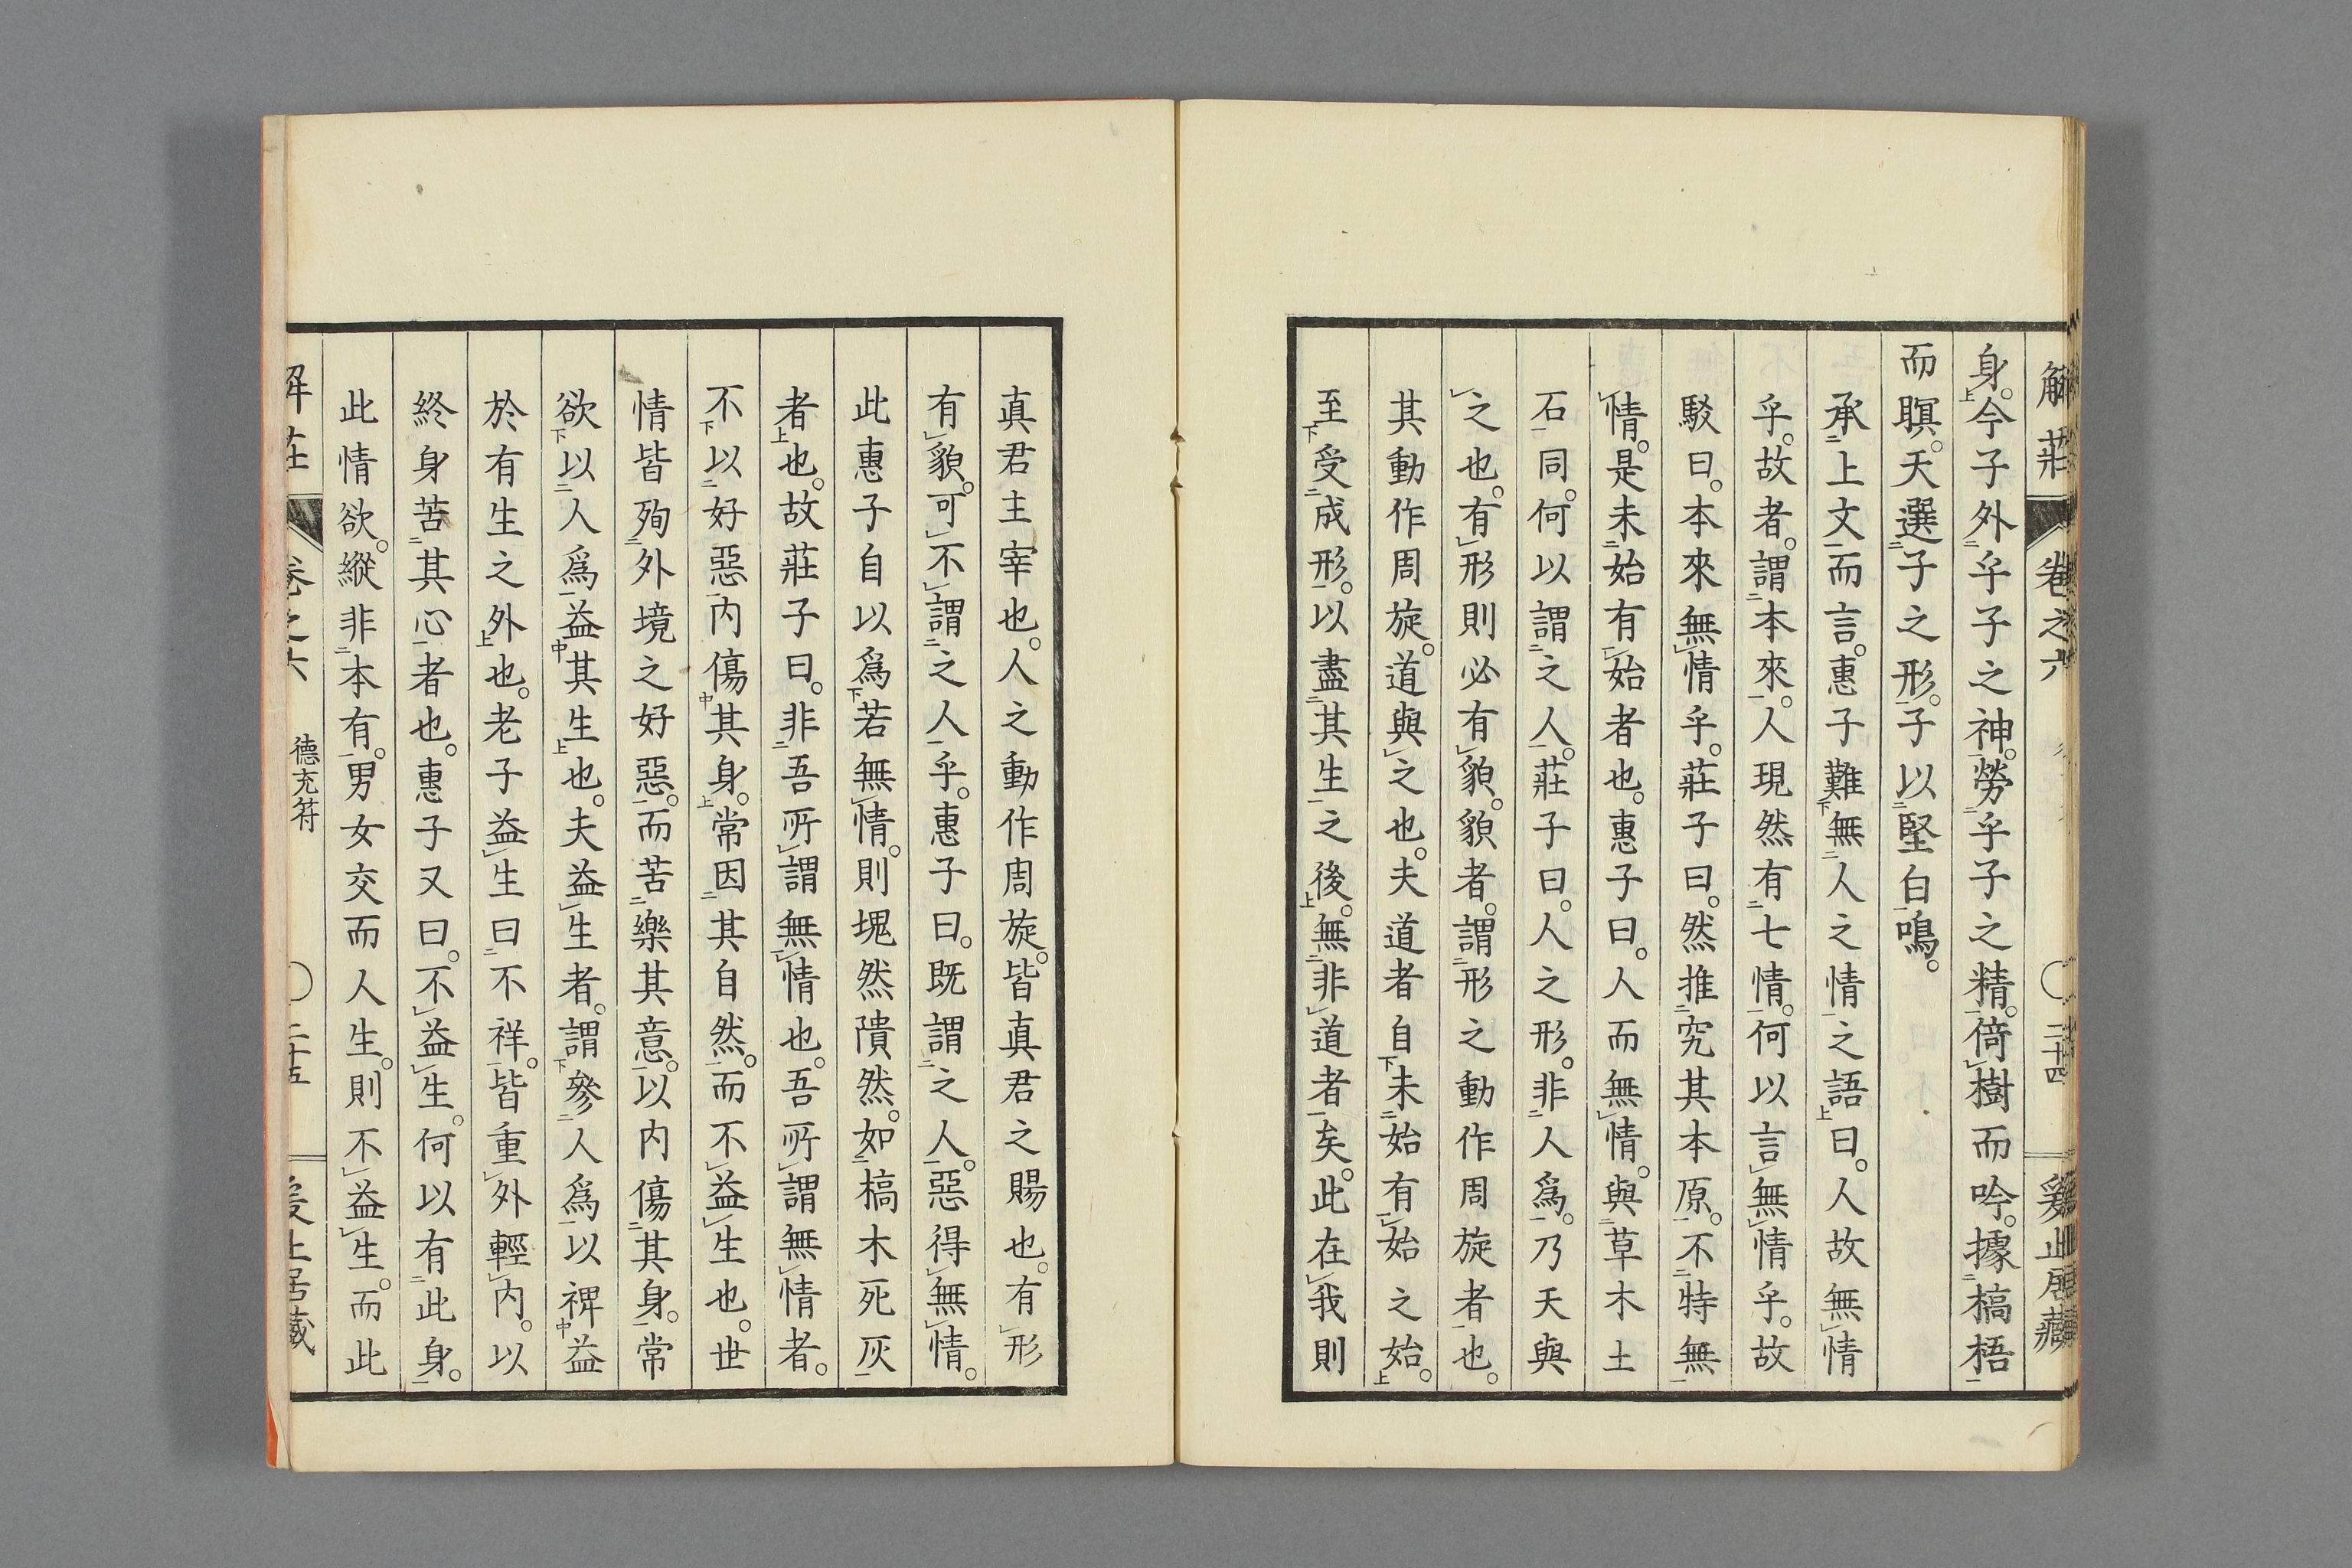 解莊 卷之六 二十四
身。今子外乎子之神。勞乎子之精。倚樹而吟。據槁梧
而瞑。天選子之形。子以堅白鳴。
承上文而言。惠子難無人之情之語曰。人故無情
乎。故者。謂本來。人現然有七情。何以言無情乎。故
駁曰。本來無情乎。莊子曰。然推究其本原。不特無
情。是未始有始者也。惠子曰。人而無情。與草木土
石同。何以謂之人。莊子曰。人之形。非人爲。乃天與
之也。有形則必有貌。貌者。謂形之動作周旋者也。
其動作周旋。道與之也。夫道者自未始有始之始。
至受成形。以盡其生之後。無非道者矣。此在我則
真君主宰也。人之動作周旋。皆真君之賜也。有形
有貌。可不謂之人乎。惠子曰。既謂之人。惡得無情。
此惠子自以爲若無情。則塊然隤然。如槁木死灰
者也。故莊子曰。非吾所謂無情也。吾所謂無情者。
不以好惡内傷其身。常因其自然。而不益生也。世
情皆殉外境之好惡。而苦樂其意。以内傷其身。常
欲以人爲益其生也。夫益生者。謂參人爲以裨益
於有生之外也。老子益生曰不祥。皆重外輕内。以
終身苦其心者也。惠子又曰。不益生。何以有此身。
此情欲。縱非本有。男女交而人生。則不益生。而此
解莊 卷之六 德充符 二十五